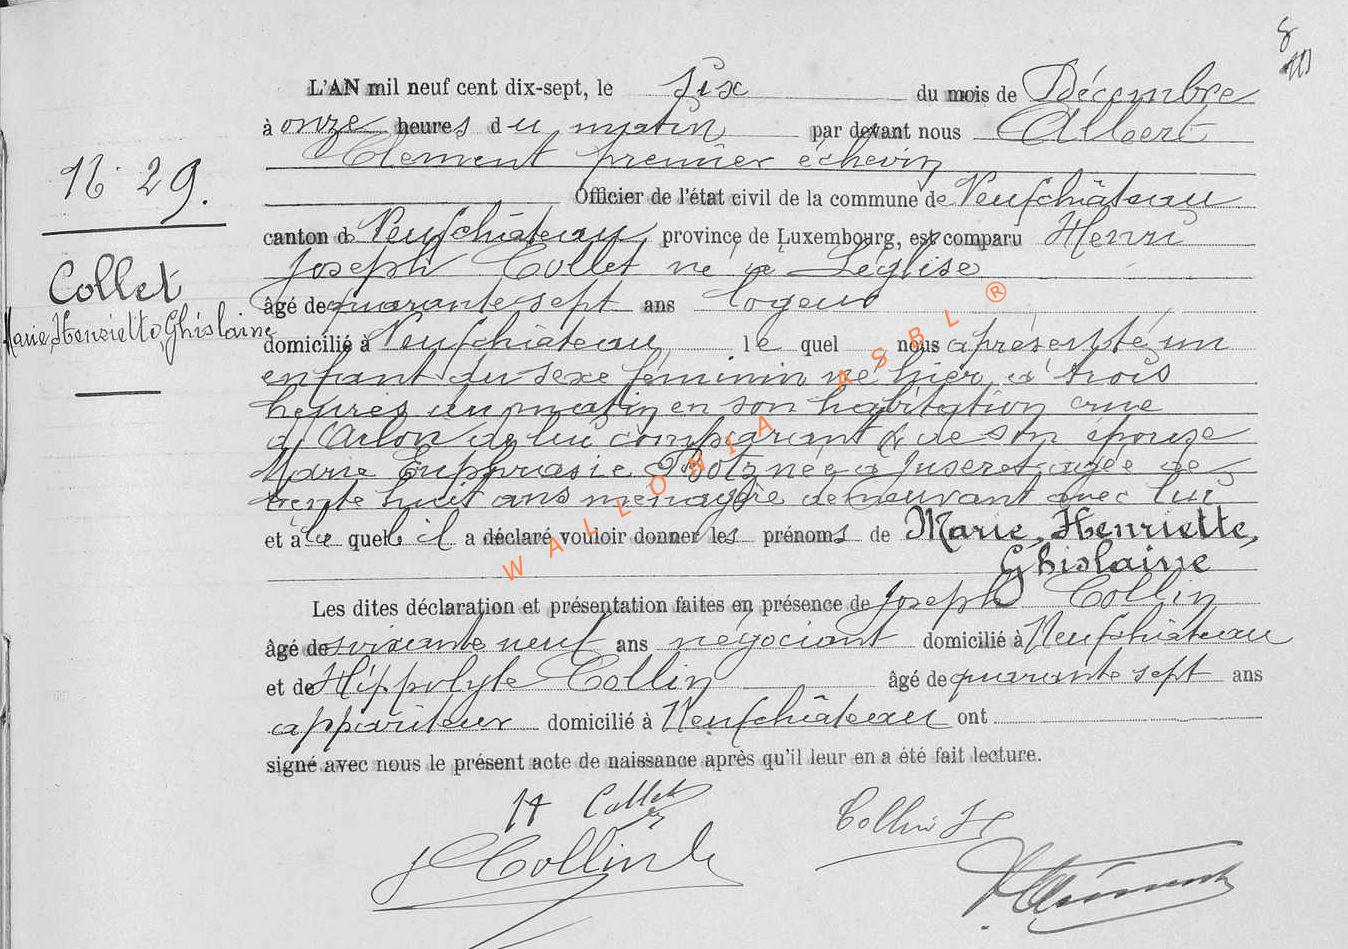 8
L'AN mil neuf cent dix-sept, le six du mois de Décembre
à onze heures du matin par devant nous Albert
Clément premier échevin
N° 29.
Officier de l'état civil de la commune de Neufchâteau
canton de Neufchâteau, province de Luxembourg, est comparu Henri
Joseph Collet né à Léglise
Collet
Marie, Henriette, Ghislaine
âgé de quarante sept ans logeur
domicilié à Neufchâteau, le quel nous a présenté un
enfant du sexe féminin né hier à trois
heures du matin en son habitation rue
d'Arlon de lui comparant & de son épouse
Marie Euphrasie née à Juseret agée de
trente huit ans ménagère demeurant avec lui
et à la quelle il a déclaré vouloir donner les prénoms de Marie, Henriette,
Ghislaine
Les dites déclaration et présentation faites en présence de Joseph Collin
âgé de soixante neuf ans négociant domicilié à Neufchâteau
et de Hippolyte Collin âgé de quarante sept ans
appariteur domicilié à Neufchâteau ont
signé avec nous le présent acte de naissance après qu'il leur en a été fait lecture.
H Collet
Collin
J Collin
Clément
WALLONIA ASBL ®